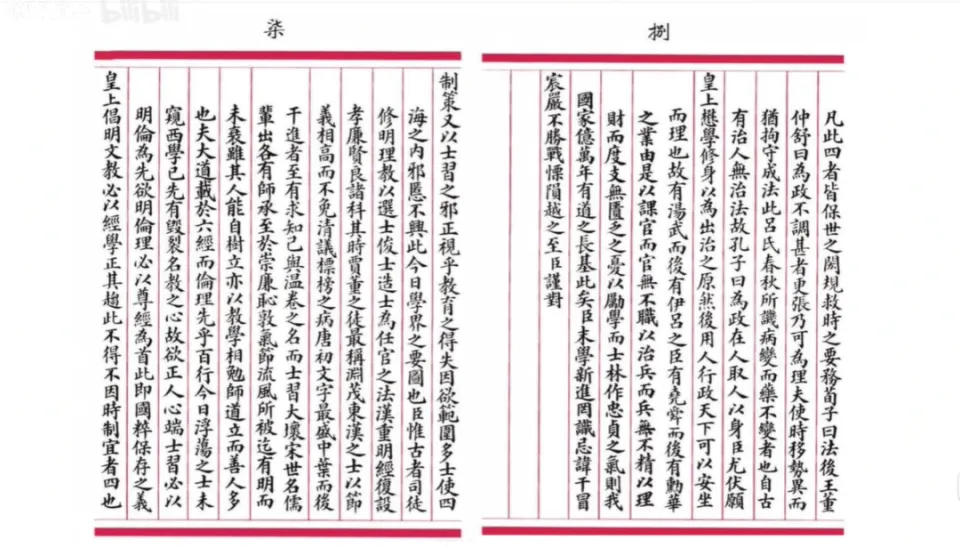 柒
制策又以士習之邪正視乎教育之得失因欲範圍多士使四
海之内邪慝不興此今日學界之要圖也臣惟古者司徒
修明理教以選士俊士造士為任官之法漢重明經復設
孝廉賢良諸科其時賈董之徒最稱淵茂東漢之士以節
義相高而不免清議標榜之病唐初文字最盛中葉而後
干進者至有求知己與温卷之名而士習大壞宋世名儒
輩出各有師承至於崇廉恥敦氣節流風所被迄有明而
未衰雖其人能自樹立亦以教學相勉師道立而善人多
也夫大道載於六經而倫理先乎百行今日浮蕩之士未
窺西學已先有毀裂名教之心故欲正人心端士習必以
明倫為先欲明倫理必以尊經為首此即國粹保存之義
皇上倡明文教必以經學正其趨此不得不因時制宜者四也
捌
凡此四者皆保世之閎規救時之要務荀子曰法後王董
仲舒曰為政不調甚者更張乃可為理夫使時移勢異而
猶拘守成法此呂氏春秋所譏病變而藥不變者也自古
有治人無治法故孔子曰為政在人取人以身臣尤伏願
皇上懋學修身以為出治之原然後用人行政天下可以安坐
而理也故有湯武而後有伊呂之臣有堯舜而後有勳華
之業由是以課官而官無不職以治兵而兵無不精以理
財而度支無匱乏之憂以勵學而士林作忠貞之氣則我
國家億萬年有道之長基此矣臣末學新進罔識忌諱干冒
宸嚴不勝戰慄隕越之至臣謹對